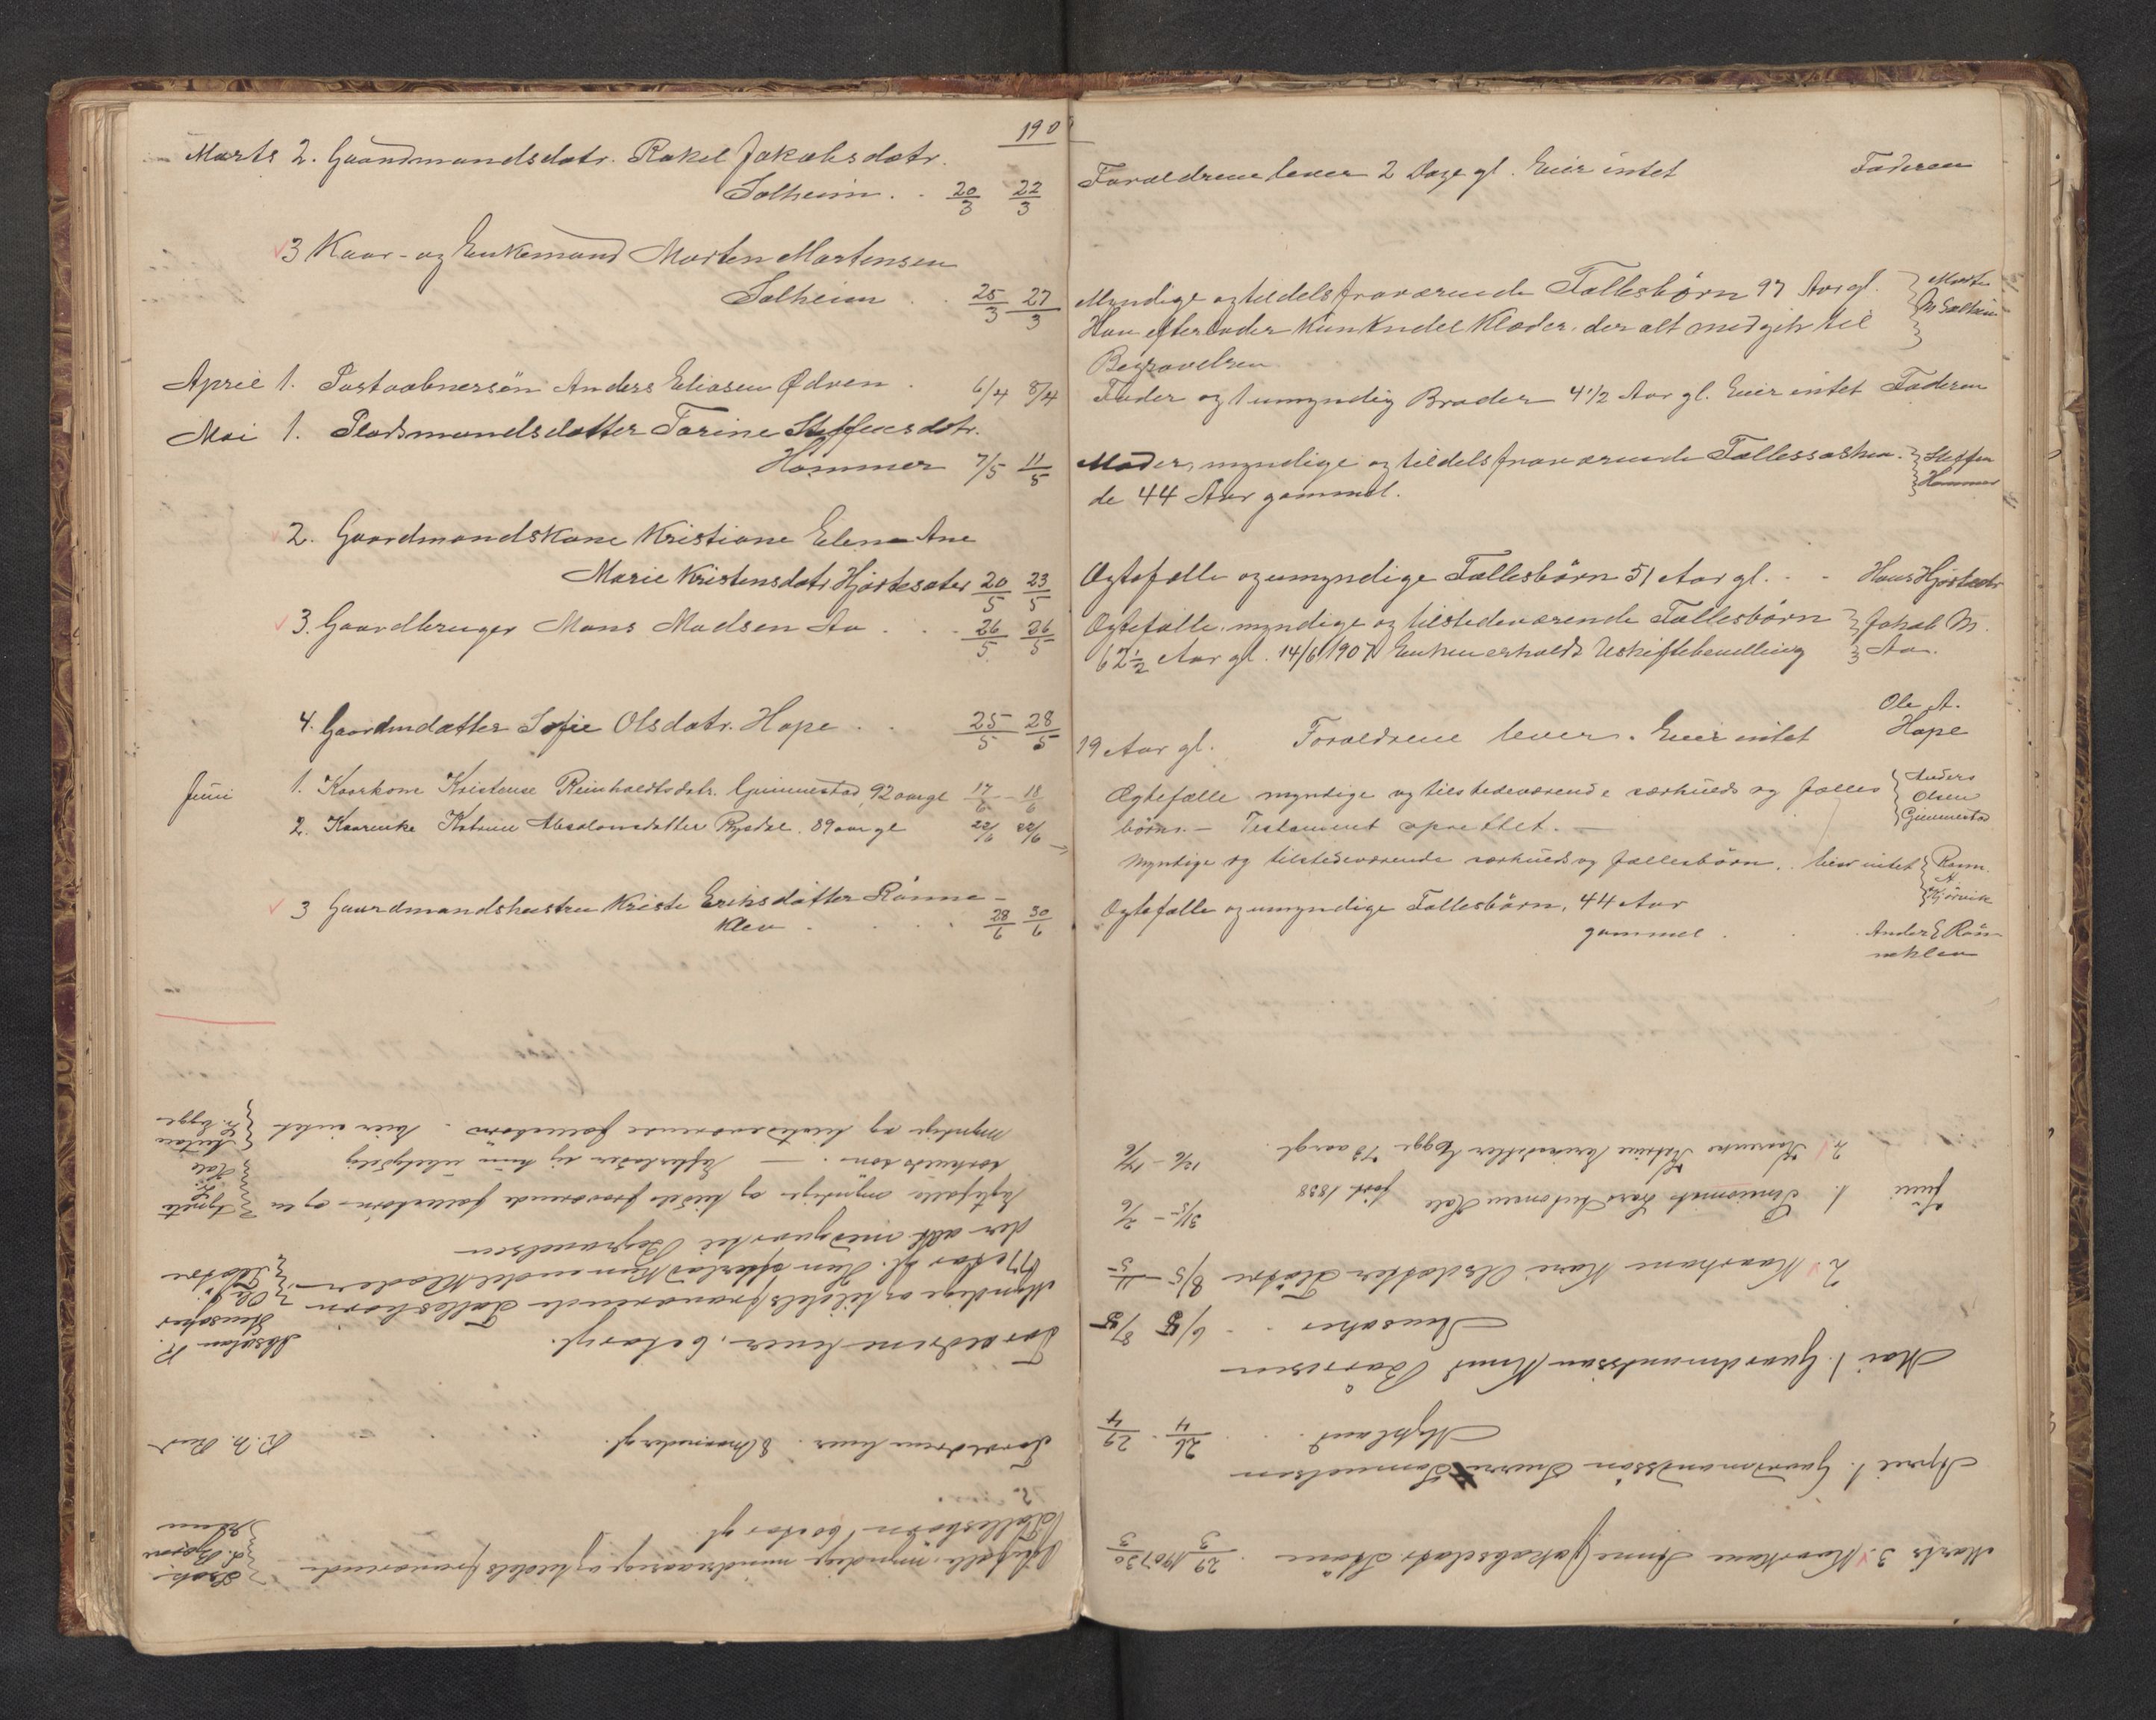 190
Marts 2. Gaardmandsdatr. Rakel Jakobsdatr.
Solheim . . 20/3 22/3
Forældrene lever 2 Dage gl. Eier intet Faderen
3 Kaar- og Enkemand Morten Mortensen
Solheim . . 25/3 27/3
Myndige og tildels fraværende Fællesbørn 97 Aar gl. Morten
Han efterlader kun endel Klæder, der alt medgik til M Solheim
Begravelsen
April 1. Postaabnersön Anders Eliasen Ødven . 6/4 8/4
Fader og 1 umyndig Broder 4 1/2 Aar gl. Eier intet Faderen
Mai 1. Pladsmandsdatter Torine Steffensdatr.
Hammer 7/5 11/5
Moder, myndige og tildels fraværende Fællessøsken- Steffen
de 44 Aar gammel. Hammer
2. Gaardmandskone Kristiane Elene Ane
Marie Kristensdatr Hjortesæter 20/5 23/5
Ægtefælle og umyndige Fællesbörn 51 Aar gl. . - Hans Hjortesætr
3. Gaardbruger Mons Madsen Aa . . . 26/5 26/5
Ægtefælle, myndige og tilstedeværende Fællesbörn Jakob M.
62 1/2 Aar gl. 14/6 1907 Enken erholdt Uskiftebevilling Aa.
4. Gaardmdatter Sofie Olsdatr. Hope . . 25/5 28/5
19 Aar gl. Forældrene lever. Eier intet Ole A.
Hope
Juni 1. Kaarkone Kristense Reinholdtsdatr. Gimmestad, 92 aar gl 17/6 - 18/6
Ægtefælle myndige og tilstedeværende særkulds og fælles Anders
börn. - Testament oprettet. - Olsen
Gimmestad
2. Kaarenke Katrine Absalonsdatter Rysdal. 89 aar gl 22/6 22/6
Myndige og tilstedeværende særkulds og fællesbörn. Eier intet Rasm.
A.
Kjörvik
3 Gaardmandshustru Kristi Eriksdatter Rönne-
klev . . . . . 28/6 30/6
Ægtefælle og umyndige Fællesbörn, 44 Aar
gammel . . Anders E Rön-
neklev
Marts 3. Kaarkone Anne Jakobsdatr. . 29/3 1907 30/3
Ægtefælle, myndige mindreaarige og tildels fraværende
Fællesbörn 60 Aar gl
75 Aar.
April 1. Gaardmandssön Samuelsen
Mykland . . 26/4 . 29/4
Forældrene lever. 8 Maaneder gl.
Mai 1. Gaardmandssön Knud
. . 6/5 8/5
Forældrene lever, 6 Aar gl. Absalon K.
2 Kaarkone Mari Olsdatter Fløtre 8/5 - 11/5
Myndige og tildels fraværende Fællesbörn Ole J.
Aar gl. Hun efterlod kun endel Klæder Fløtre
der alt medgaar til Begravelsen
Juni 1. Lars Antonsen Hole född 1838 31/5 - 2/6
Ægtefælle myndige og tildels fraværende fællesbörn og en
særkulds sön. - Efterlader sig kun ubetydelig Hole
2. Kaarenke Katrine Egge 78 aar gl. . 12/6 - 14/6
myndige og tilstedeværende fællesbörn . Eier intet Egge